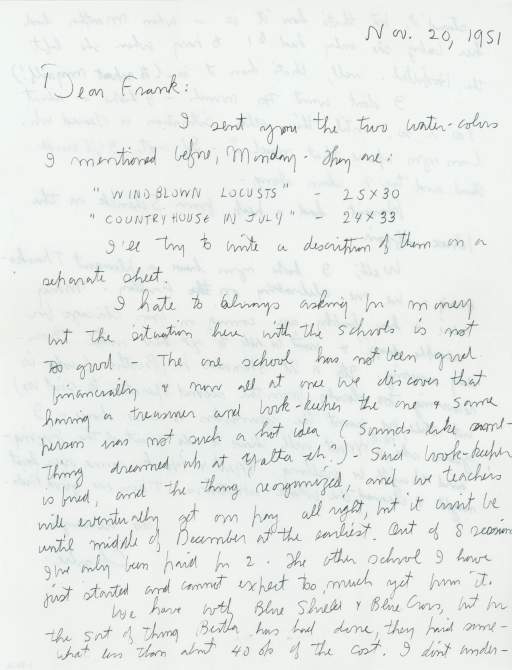 Nov. 20, 1951
Dear Frank:
I sent you the two water-colors
I mentioned before, Monday. They are:
"WINDBLOWN LOCUSTS" - 25X30
"COUNTRY HOUSE IN JULY" - 24X33
I'll try to write a description of them on a
separate sheet.
I hate to always asking for money
but the situation here with the schools is not
so good - The one school has not been good
financially & now all at once we discover that
having a treasurer and book-keeper the one & same
person was not such a hot idea (sounds like some-
thing dreamed up at Yalta eh?) - Said book-keeper
is fired, and the thing reorganized, and we teachers
will eventually get our pay all right, but it won't be
until middle of December at the earliest. Out of 8 sessions
I've only been paid for 2. The other school I have
just started and cannot expect too much yet from it.
We have both Blue Shield & Blue Cross, but for
the sort of thing Bertha has had done, they paid some-
what less than about 40% of the cost. I don't under-